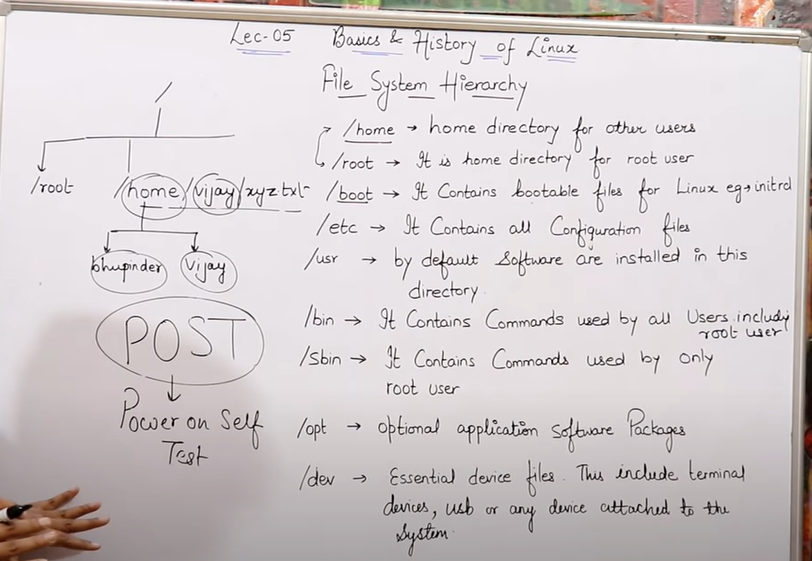 Lec-05 Basics & History of Linux
File System Hierarchy
/
/root /home/vijay/xyz.txt
bhupinder vijay
POST
Power on Self
Test
/home → home directory for other users
/root → It is home directory for root user
/boot → It Contains bootable files for Linux eg → initrd
/etc → It Contains all Configuration files
/usr → by default Software are installed in this
directory.
/bin → It Contains Commands used by all Users including
root user
/Sbin → It Contains Commands used by only
root user
/opt → optional application Software Packages
/dev → Essential device files. This include terminal
devices, usb or any device attached to the
System.